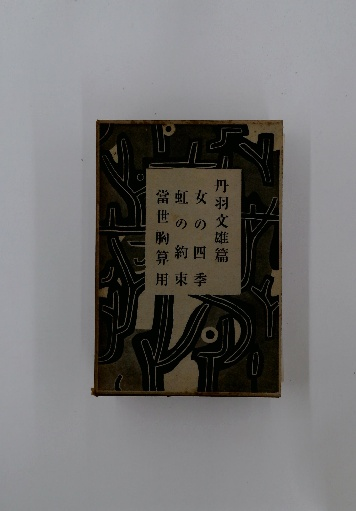 丹羽文雄篇
女の四季
虹の約束
當世胸算用